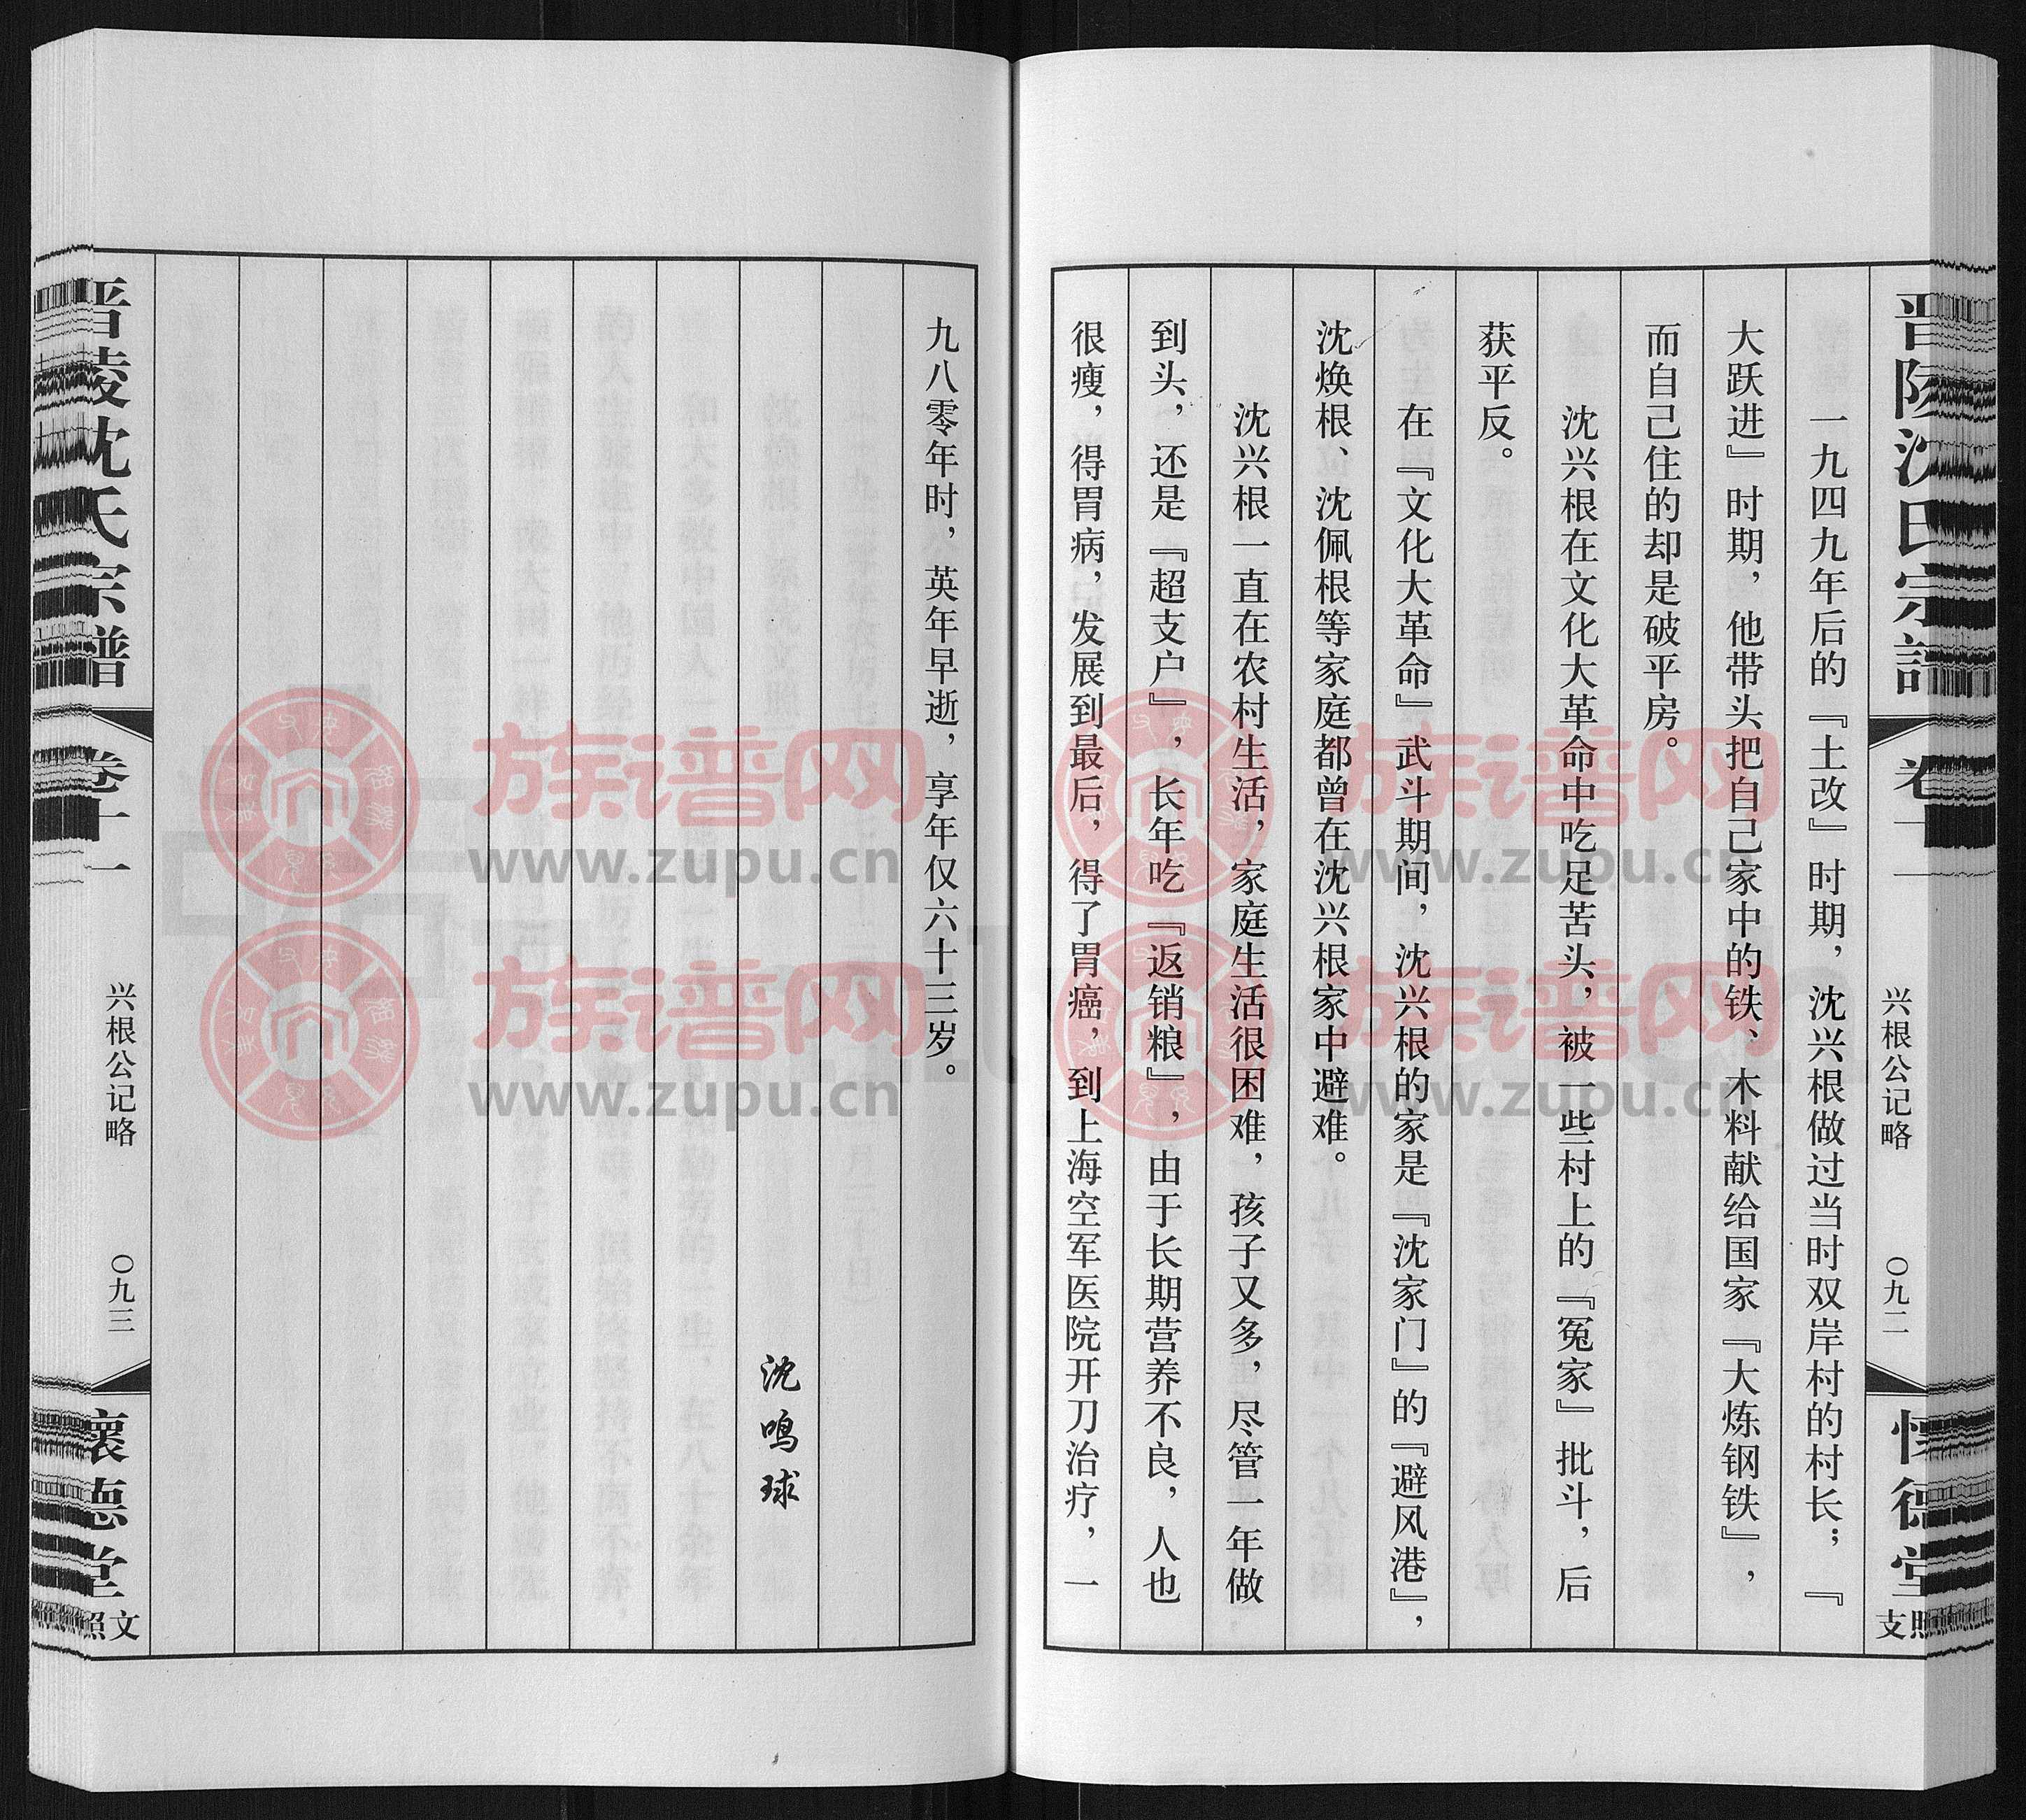 晋陵沈氏宗谱
卷十一
兴根公记略
〇九二
怀德堂
一九四九年后的『土改』时期，沈兴根做过当时双岸村的村长；『
大跃进』时期，他带头把自己家中的铁、木料献给国家『大炼钢铁』，
而自己住的却是破平房。
沈兴根在文化大革命中吃足苦头，被一些村上的『冤家』批斗，后
获平反。
在『文化大革命』武斗期间，沈兴根的家是『沈家门』的『避风港』，
沈焕根、沈佩根等家庭都曾在沈兴根家中避难。
沈兴根一直在农村生活，家庭生活很困难，孩子又多，尽管一年做
到头，还是『超支户』，长年吃『返销粮』，由于长期营养不良，人也
很瘦，得胃病，发展到最后，得了胃癌，到上海空军医院开刀治疗，一
九八零年时，英年早逝，享年仅六十三岁。
沈鸣球
晋陵沈氏宗谱
卷十一
兴根公记略
〇九三
怀德堂
族谱网
www.zupu.cn
族谱网
www.zupu.cn
族谱网
www.zupu.cn
族谱网
www.zupu.cn